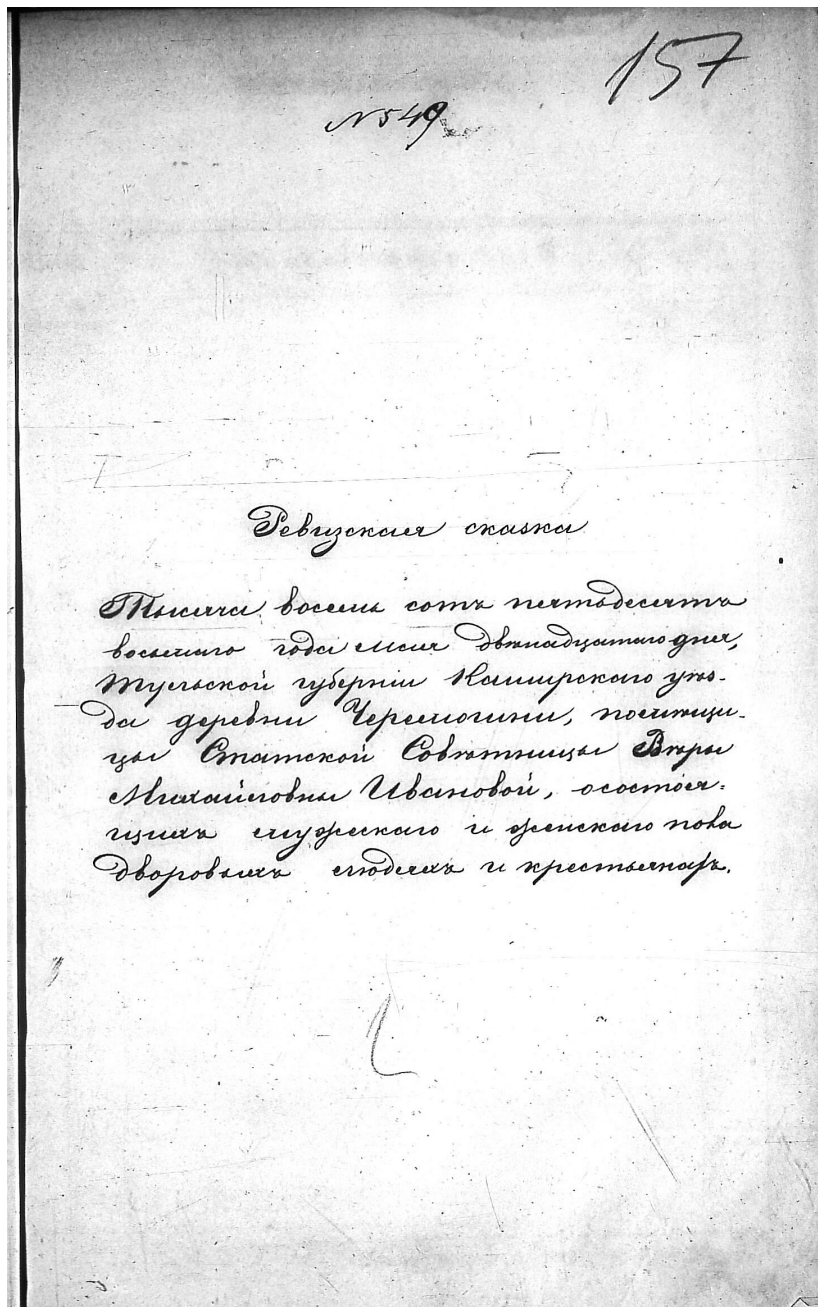 157
№ 549
Ревизская сказка
Тысяча восемь сотъ пятьдесятъ
восьмаго года мая двѣнадцатаго дня,
Тульской губерніи Каширскаго уѣз-
да деревни Черемошни, помѣщи-
цы Статской Совѣтницы Вѣры
Михайловны Ивановой, осостоя-
щихъ мужескаго и женскаго пола
дворовыхъ людяхъ и крестьянахъ.